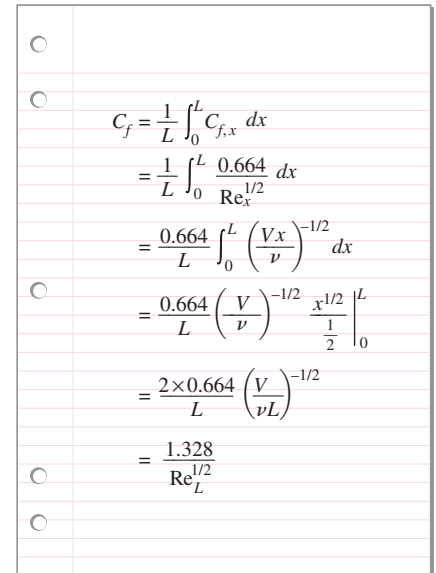 C_f = \frac{1}{L} \int_0^L C_{f,x} dx
= \frac{1}{L} \int_0^L \frac{0.664}{Re_x^{1/2}} dx
= \frac{0.664}{L} \int_0^L \left(\frac{Vx}{\nu}\right)^{-1/2} dx
= \frac{0.664}{L} \left(\frac{V}{\nu}\right)^{-1/2} \frac{x^{1/2}}{\frac{1}{2}} \Big|_0^L
= \frac{2×0.664}{L} \left(\frac{V}{\nu L}\right)^{-1/2}
= \frac{1.328}{Re_L^{1/2}}